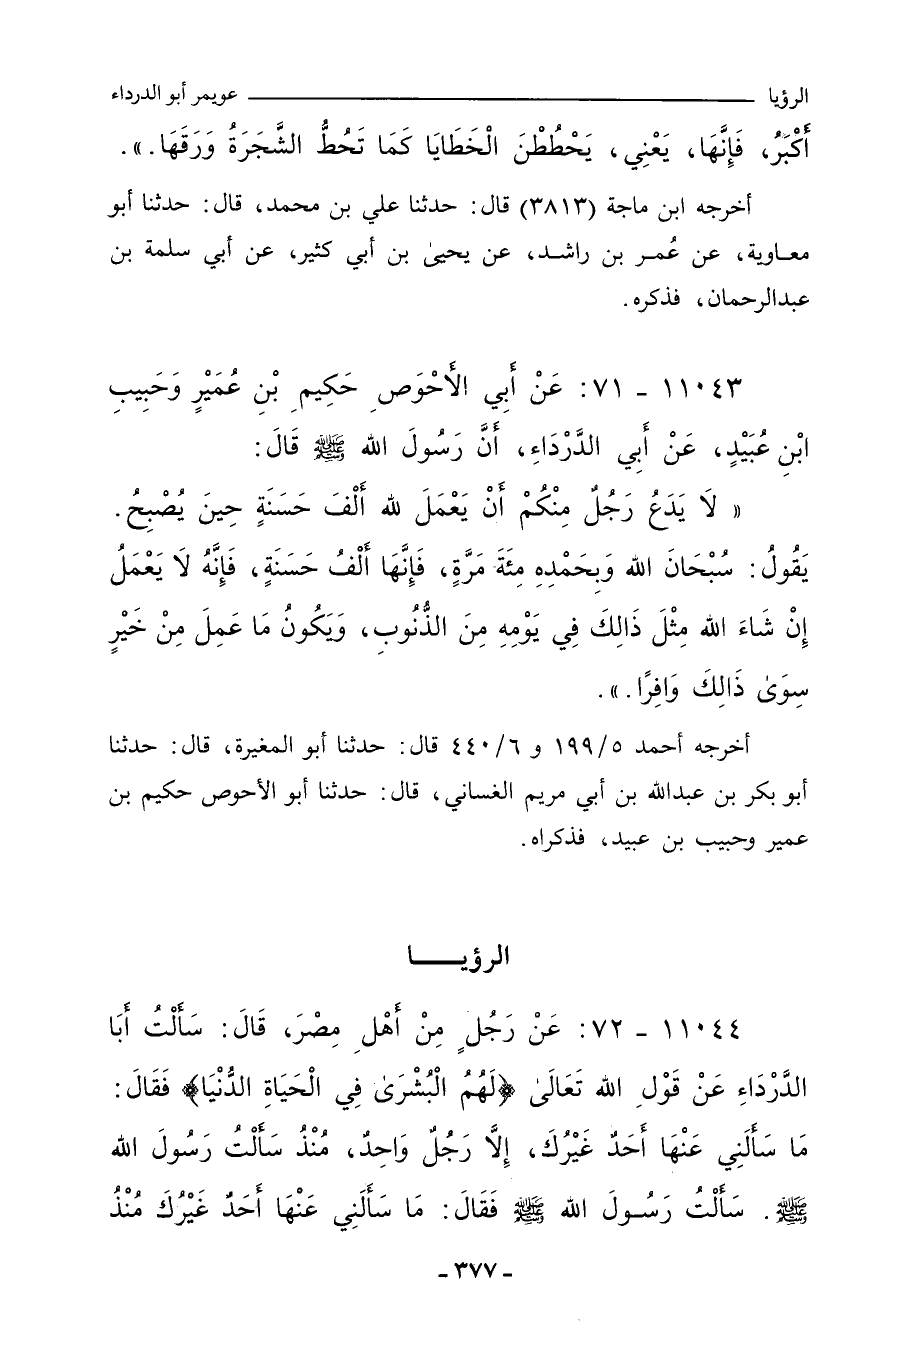 الرؤيا ــــــــــــــــ عويمر أبو الدرداء
أَكْبَرُ، فَإِنَّهَا، يَعْنِي، يَحْطُطْنَ الْخَطَايَا كَمَا تَحُطُّ الشَّجَرَةُ وَرَقَهَا.».
أخرجه ابن ماجة (٣٨١٣) قال: حدثنا علي بن محمد، قال: حدثنا أبو
معاوية، عن عُمر بن راشد، عن يحيىٰ بن أبي كثير، عن أبي سلمة بن
عبدالرحمان، فذكره.
١١٠٤٣ - ٧١: عَنْ أَبِي الأَحْوَصِ حَكِيمِ بْنِ عُمَيْرٍ وَحَبِيبِ
ابْنِ عُبَيْدٍ، عَنْ أَبِي الدَّرْدَاءِ، أَنَّ رَسُولَ الله ﷺ قَالَ:
« لَا يَدَعُ رَجُلٌ مِنْكُمْ أَنْ يَعْمَلَ لله أَلْفَ حَسَنَةٍ حِينَ يُصْبِحُ.
يَقُولُ: سُبْحَانَ الله وَبِحَمْدِهِ مِئَةَ مَرَّةٍ، فَإِنَّهَا أَلْفُ حَسَنَةٍ، فَإِنَّهُ لَا يَعْمَلُ
إِنْ شَاءَ الله مِثْلَ ذَالِكَ فِي يَوْمِهِ مِنَ الذُّنُوبِ، وَيَكُونُ مَا عَمِلَ مِنْ خَيْرٍ
سِوَىٰ ذَالِكَ وَافِرًا.».
أخرجه أحمد ١٩٩/٥ و ٤٤٠/٦ قال: حدثنا أبو المغيرة، قال: حدثنا
أبو بكر بن عبدالله بن أبي مريم الغساني، قال: حدثنا أبو الأحوص حكيم بن
عمير وحبيب بن عبيد، فذكراه.
الرؤيــــا
١١٠٤٤ - ٧٢: عَنْ رَجُلٍ مِنْ أَهْلِ مِصْرَ، قَالَ: سَأَلْتُ أَبَا
الدَّرْدَاءِ عَنْ قَوْلِ الله تَعَالَىٰ ﴿لَهُمُ الْبُشْرَىٰ فِي الْحَيَاةِ الدُّنْيَا﴾ فَقَالَ:
مَا سَأَلَنِي عَنْهَا أَحَدٌ غَيْرُكَ، إِلَّا رَجُلٌ وَاحِدٌ، مُنْذُ سَأَلْتُ رَسُولَ الله
ﷺ. سَأَلْتُ رَسُولَ الله ﷺ فَقَالَ: مَا سَأَلَنِي عَنْهَا أَحَدٌ غَيْرُكَ مُنْذُ
- ٣٧٧ -